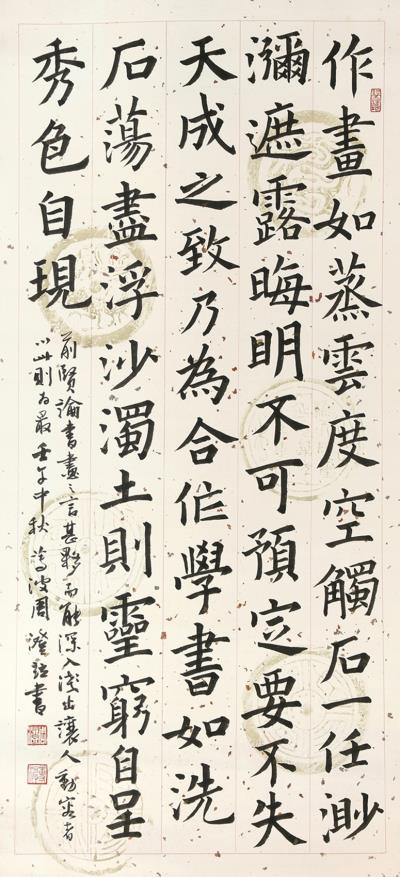 作畫如蒸雲度空觸石一任渺
瀰遮露晦明不可預定要不失
天成之致乃為合作學書如洗
石蕩盡浮沙濁土則靈窮自呈
秀色自現
前賢論書畫之言甚夥而能深入淺出讓人動容者
以此則為最 壬午中秋 波周澄書